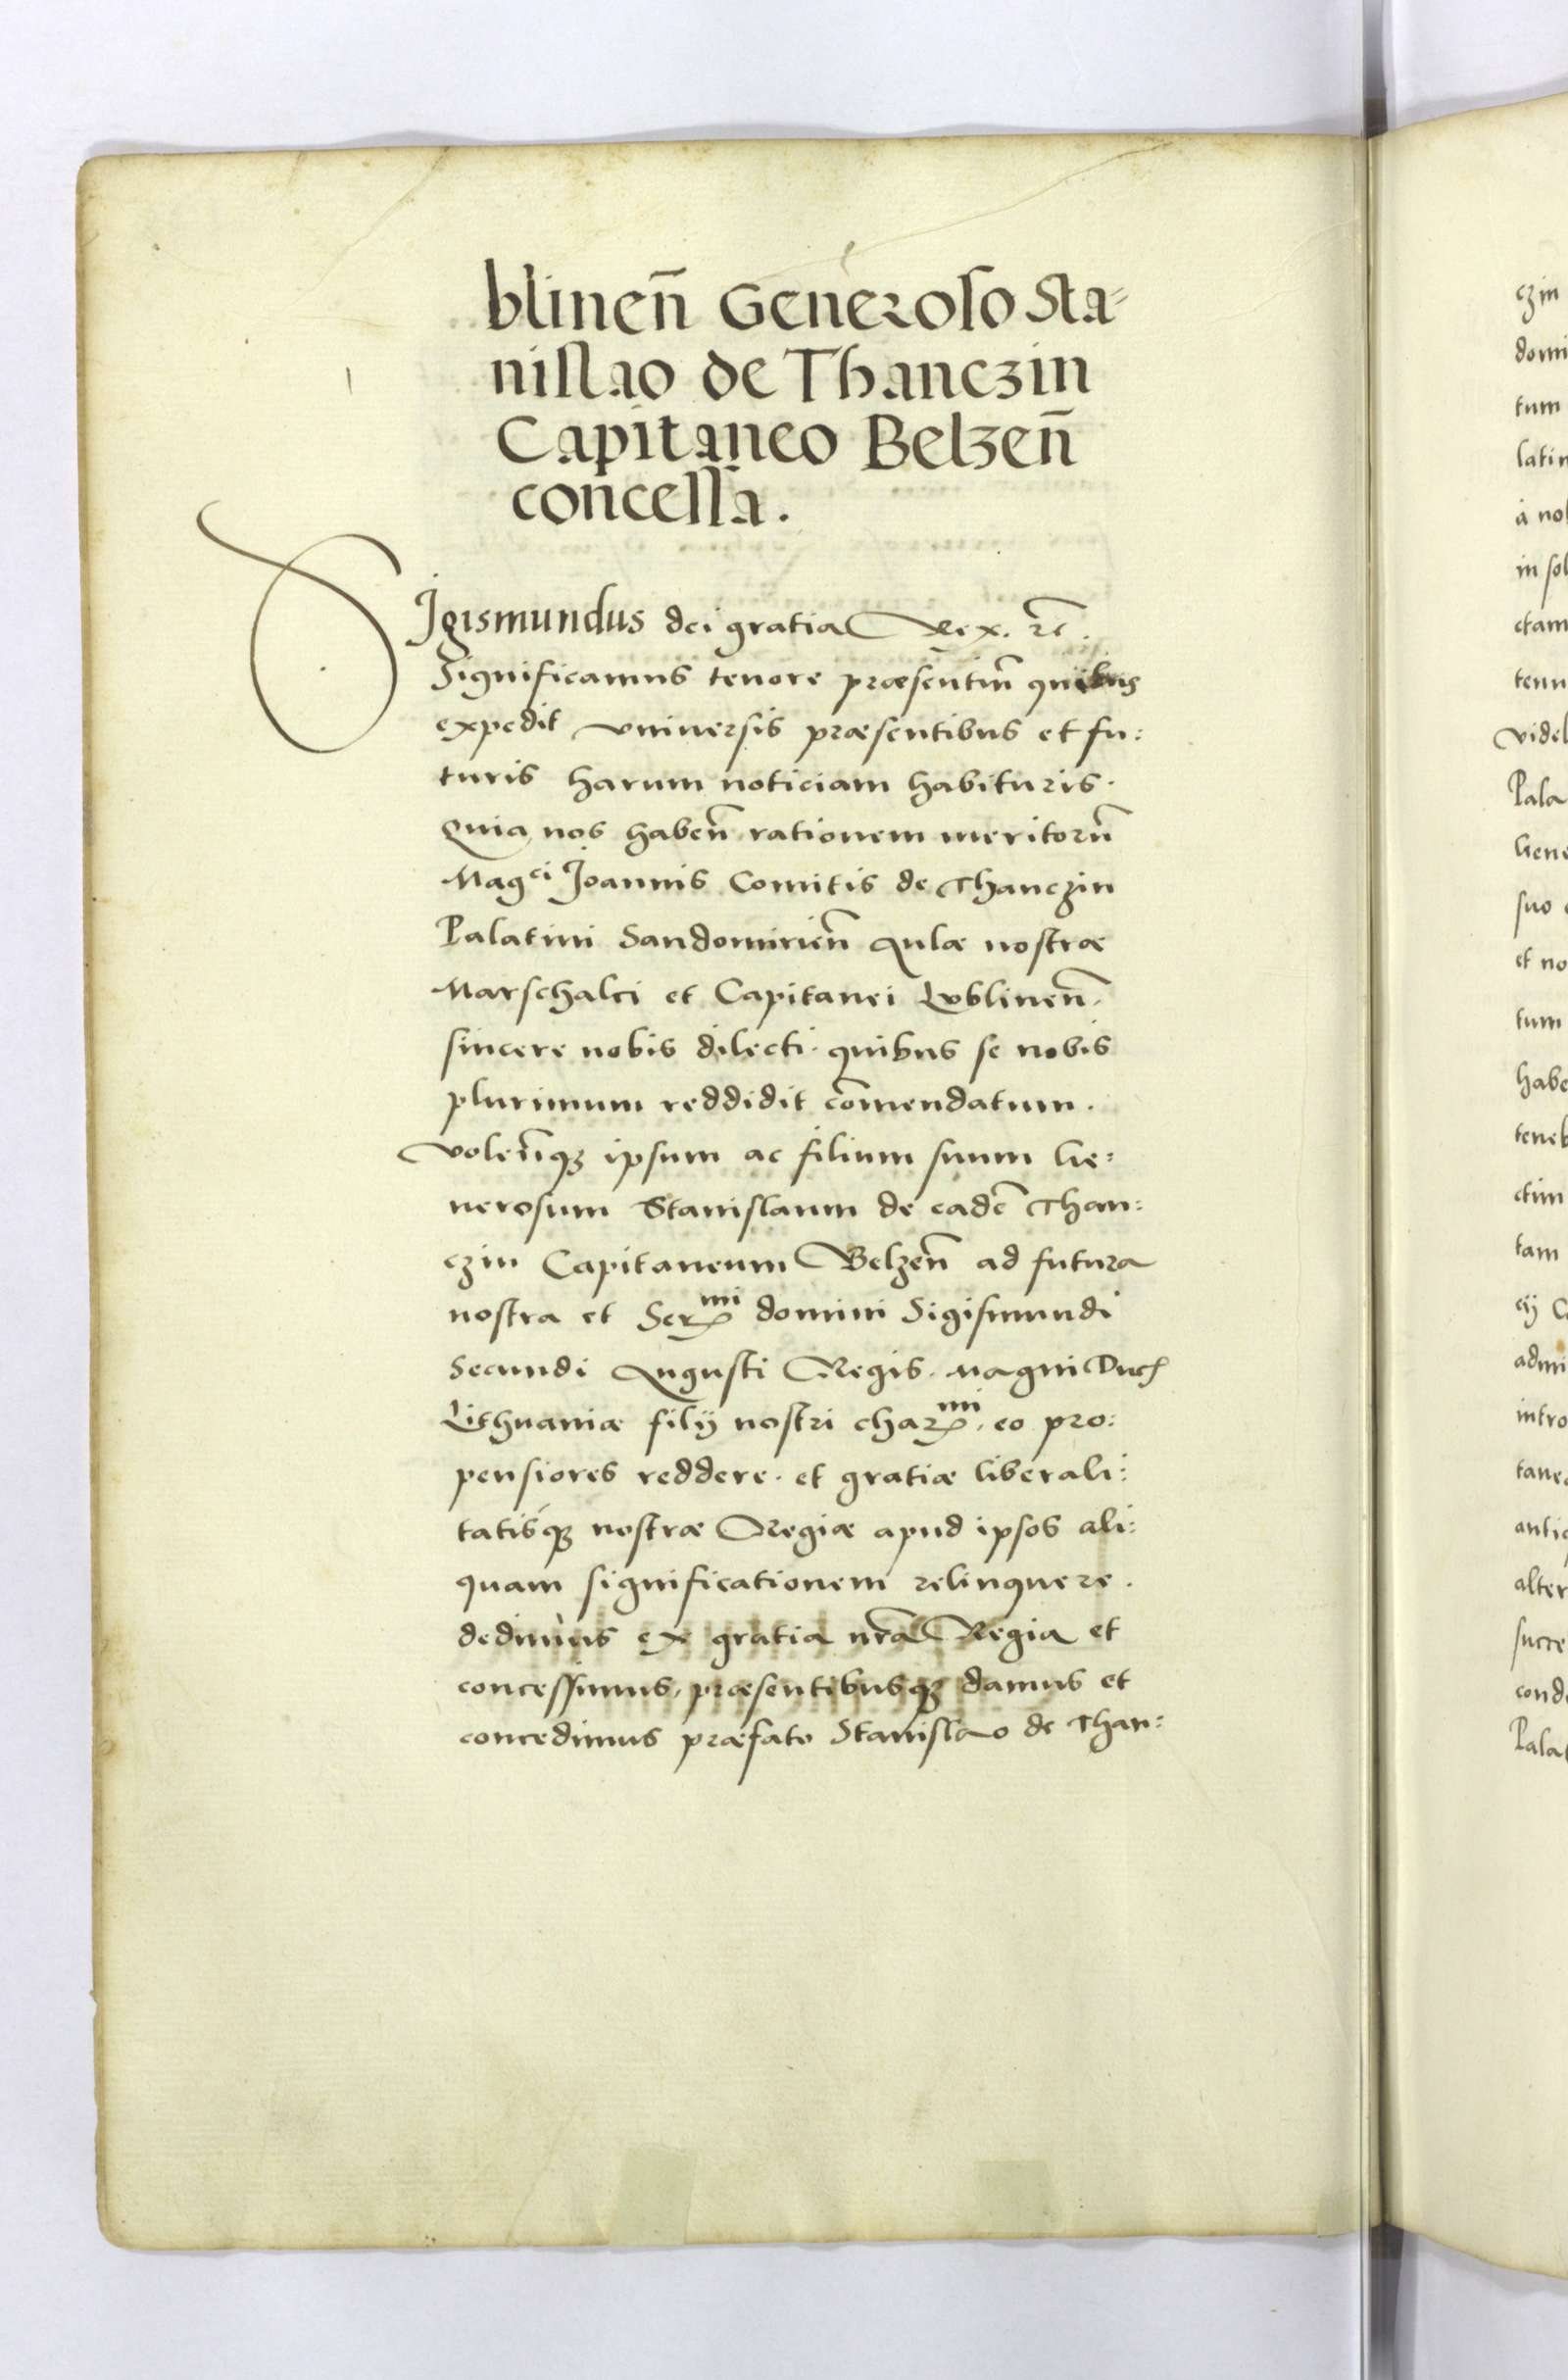 blinen̄ Generoso Sta-
nislao de Thanczin
Capitaneo Belzen̄
concessa.
SJgismundus dei gratia Rex. ꝛc̄.
Significamus tenore præsentiu̅ quibus
expedit vniuersis præsentibus et fu:
turis harum noticiam habituris.
Quia nos haben̄ rationem meritoru̅
Mag^ci Joannis Comitis de Thanczin
Palatini Sandomirien̄ Aulæ nostræ
Marschalci et Capitanei Lvblinen̄.
sincere nobis dilecti. quibus se nobis
plurimum reddidit co̅mendatum.
volen̄qꝫ ipsum ac filium suum Ge:
nerosum Stanislaum de eade̅ Than:
czin Capitaneum Belzen̄ ad futura
nostra et Ser^mi domini Sigismundi
Secundi Augusti Regis. Magni Ducꝭ
Lithuaniæ filÿ nostri char^mi. eo pro:
pensiores reddere. et gratiæ liberali:
tatisqꝫ nostræ Regiæ apud ipsos ali:
quam significationem relinquere.
dedimus ex gratia nr̅a Regia et
concessimus, præsentibusqꝫ damus et
concedimus præfato Stanislao de Than:
czin
domi
tum
latin
à no
in so
ctam
tenu
videl
Pala
Gene
suo
et no
tum
habe
teneb
ctim
tam
admi
intro
tane
antic
alter
succe
cond
Pala